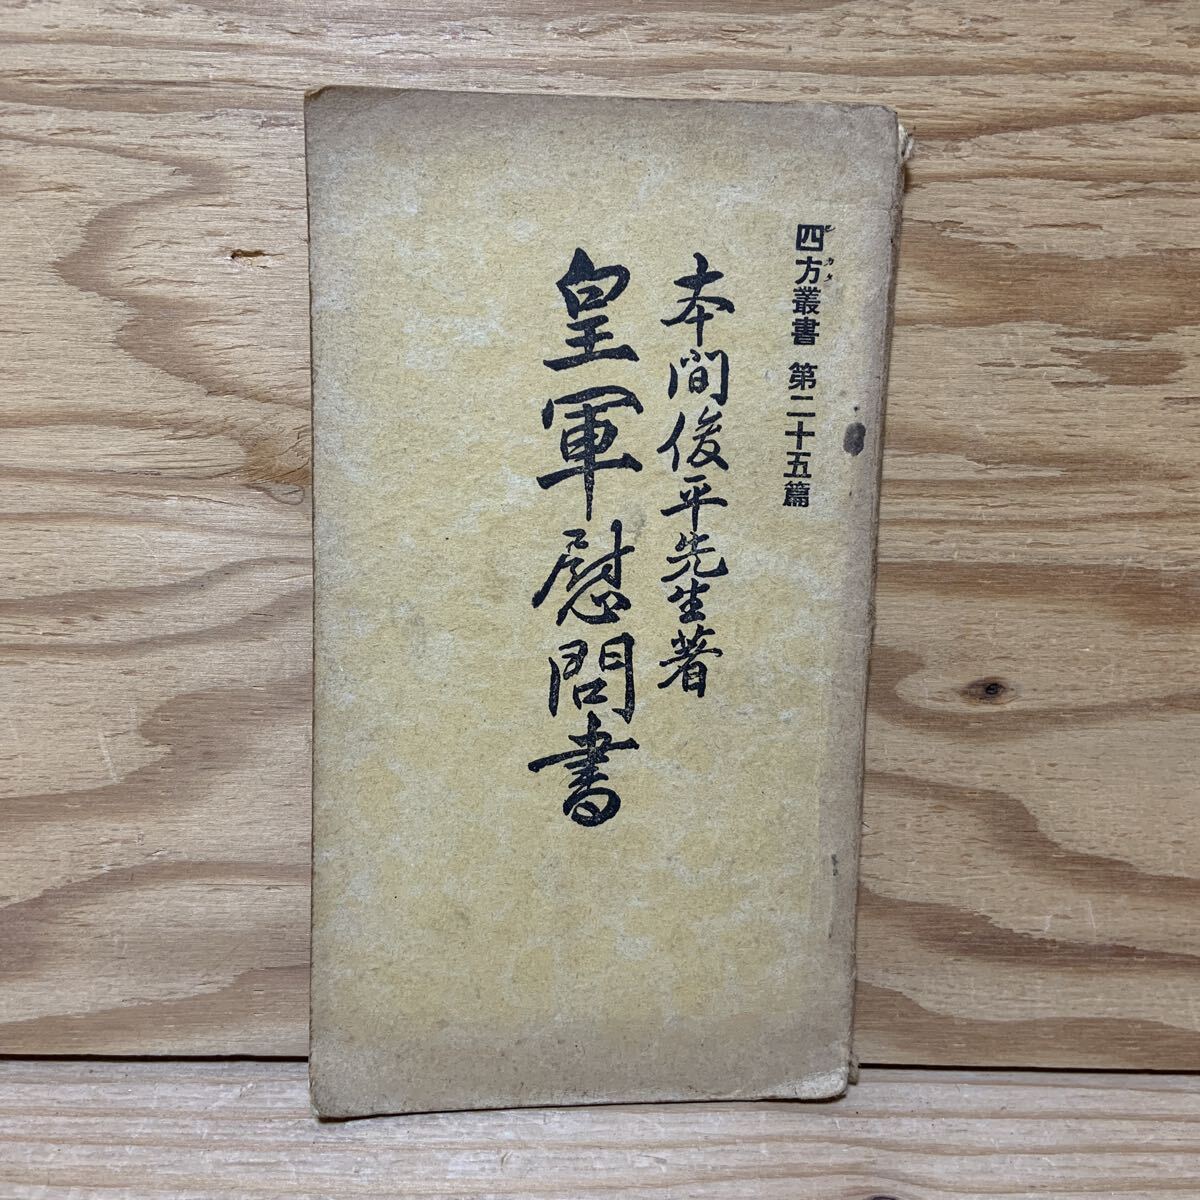 四方叢書 第二十五篇
本間俊平先生著
皇軍慰問書